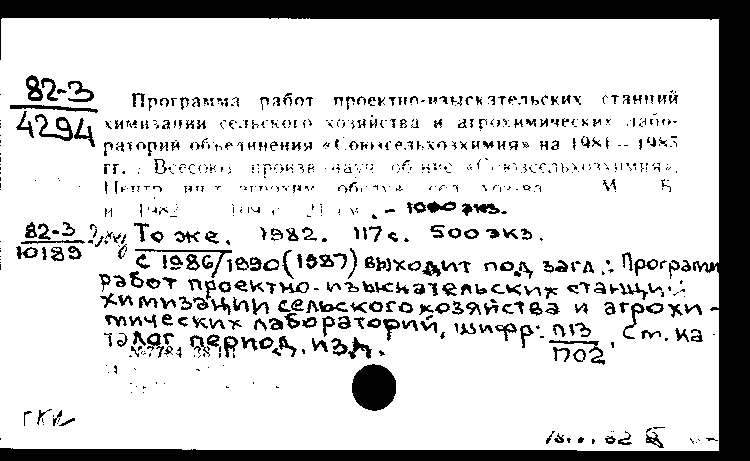 82-3
4294
Программа работ проектно-изыскательских станций
химизации сельского хозяйства и агрохимических лабо-
раторий объединения «Союзсельхозхимия» на 1981–1985
гг. / Всесоюз. произв.-науч. об-ние «Союзсельхозхимия»,
Центр. ин-т агрохим. обслуж. сел. хоз-ва. М. Б.
и. 1982 109 с. 21 см. - 1000 экз.
82-3
10189
То же. 1982. 117 с. 500 экз.
С 1986/1990 (1987) выходит под загл.: Программ
работ проектно-изыскательских станци..
химизации сельского хозяйства и агрохи-
мических лабораторий, шифр: П13/1702. См. ка-
талог период. изд.
№7784
ГКИ